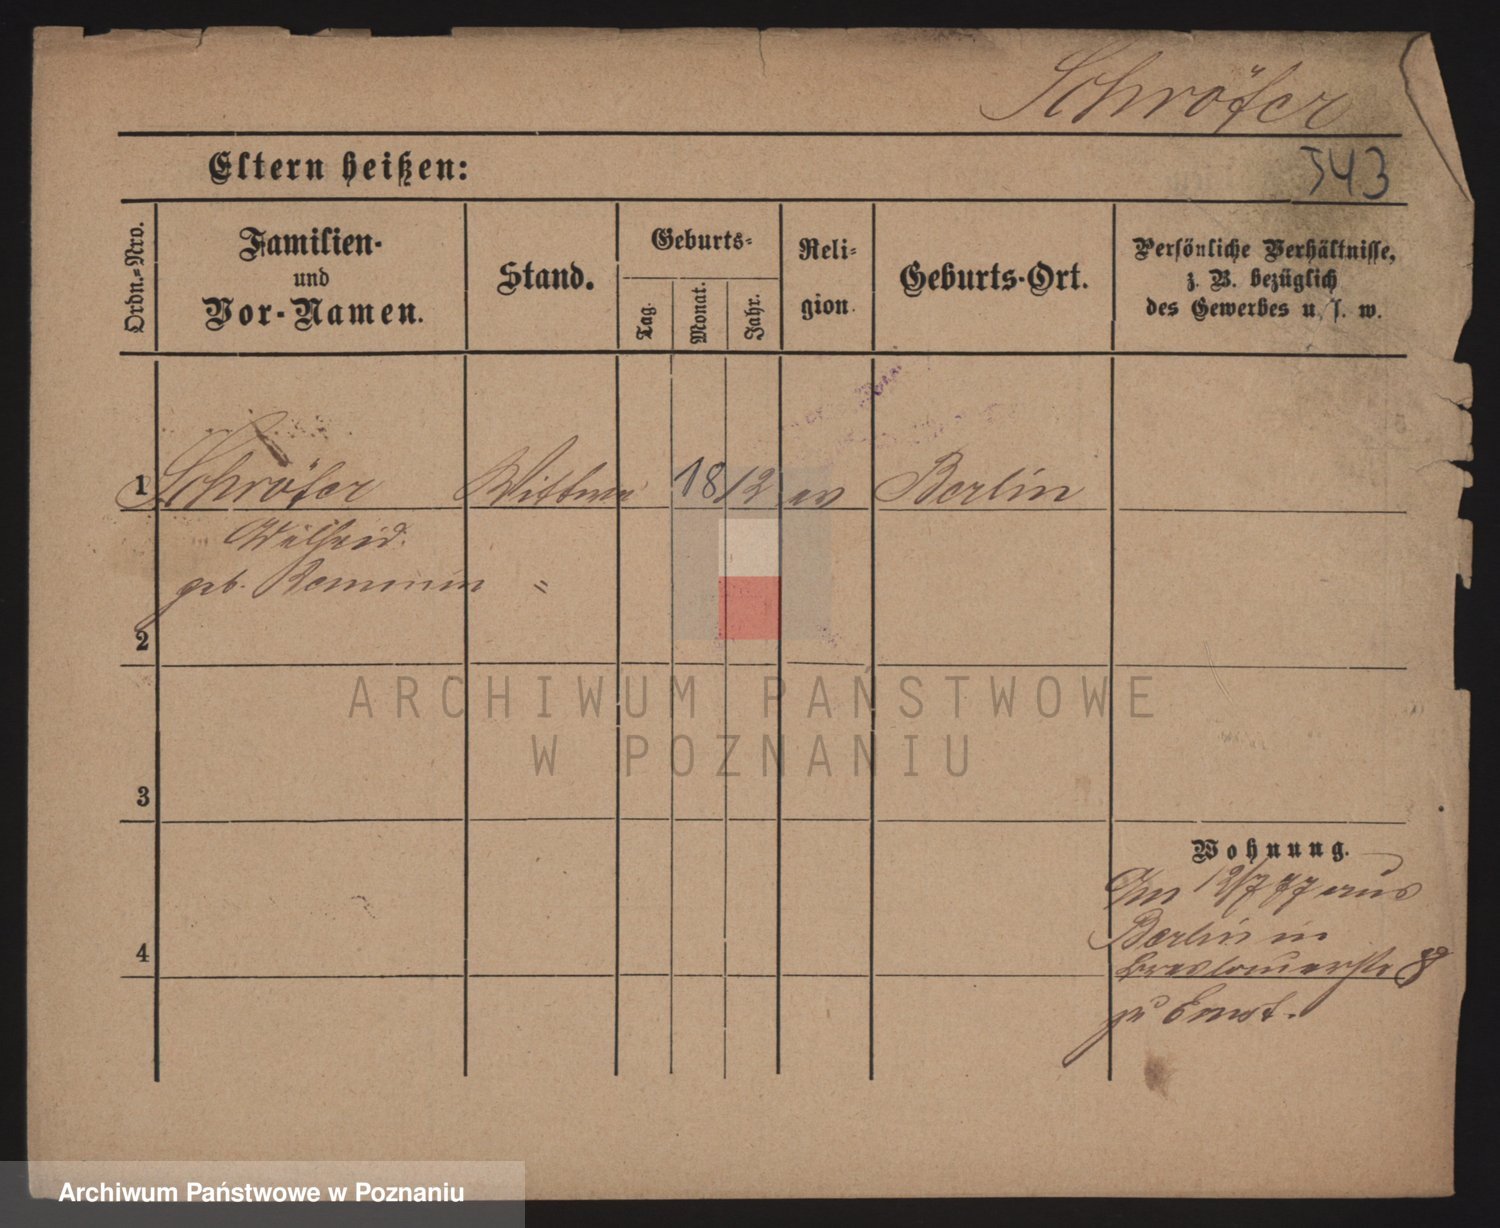 Schröfer
543
Eltern heißen:
Ordn.=Nro.
Familien-
und
Vor-Namen.
Stand.
Geburts=
Tag.
Monat.
Jahr.
Reli=
gion.
Geburts-Ort.
Persönliche Verhältnisse,
z. B. bezüglich
des Gewerbes u. s. w.
1 Schröfer Wittwe 1812 ev Berlin
geb.
2
3
4
Wohnung.
Am 12/7 77 aus
Berlin in
Breslauerstr 8
zu Ernst.
ARCHIWUM PAŃSTWOWE
W POZNANIU
Archiwum Państwowe w Poznaniu